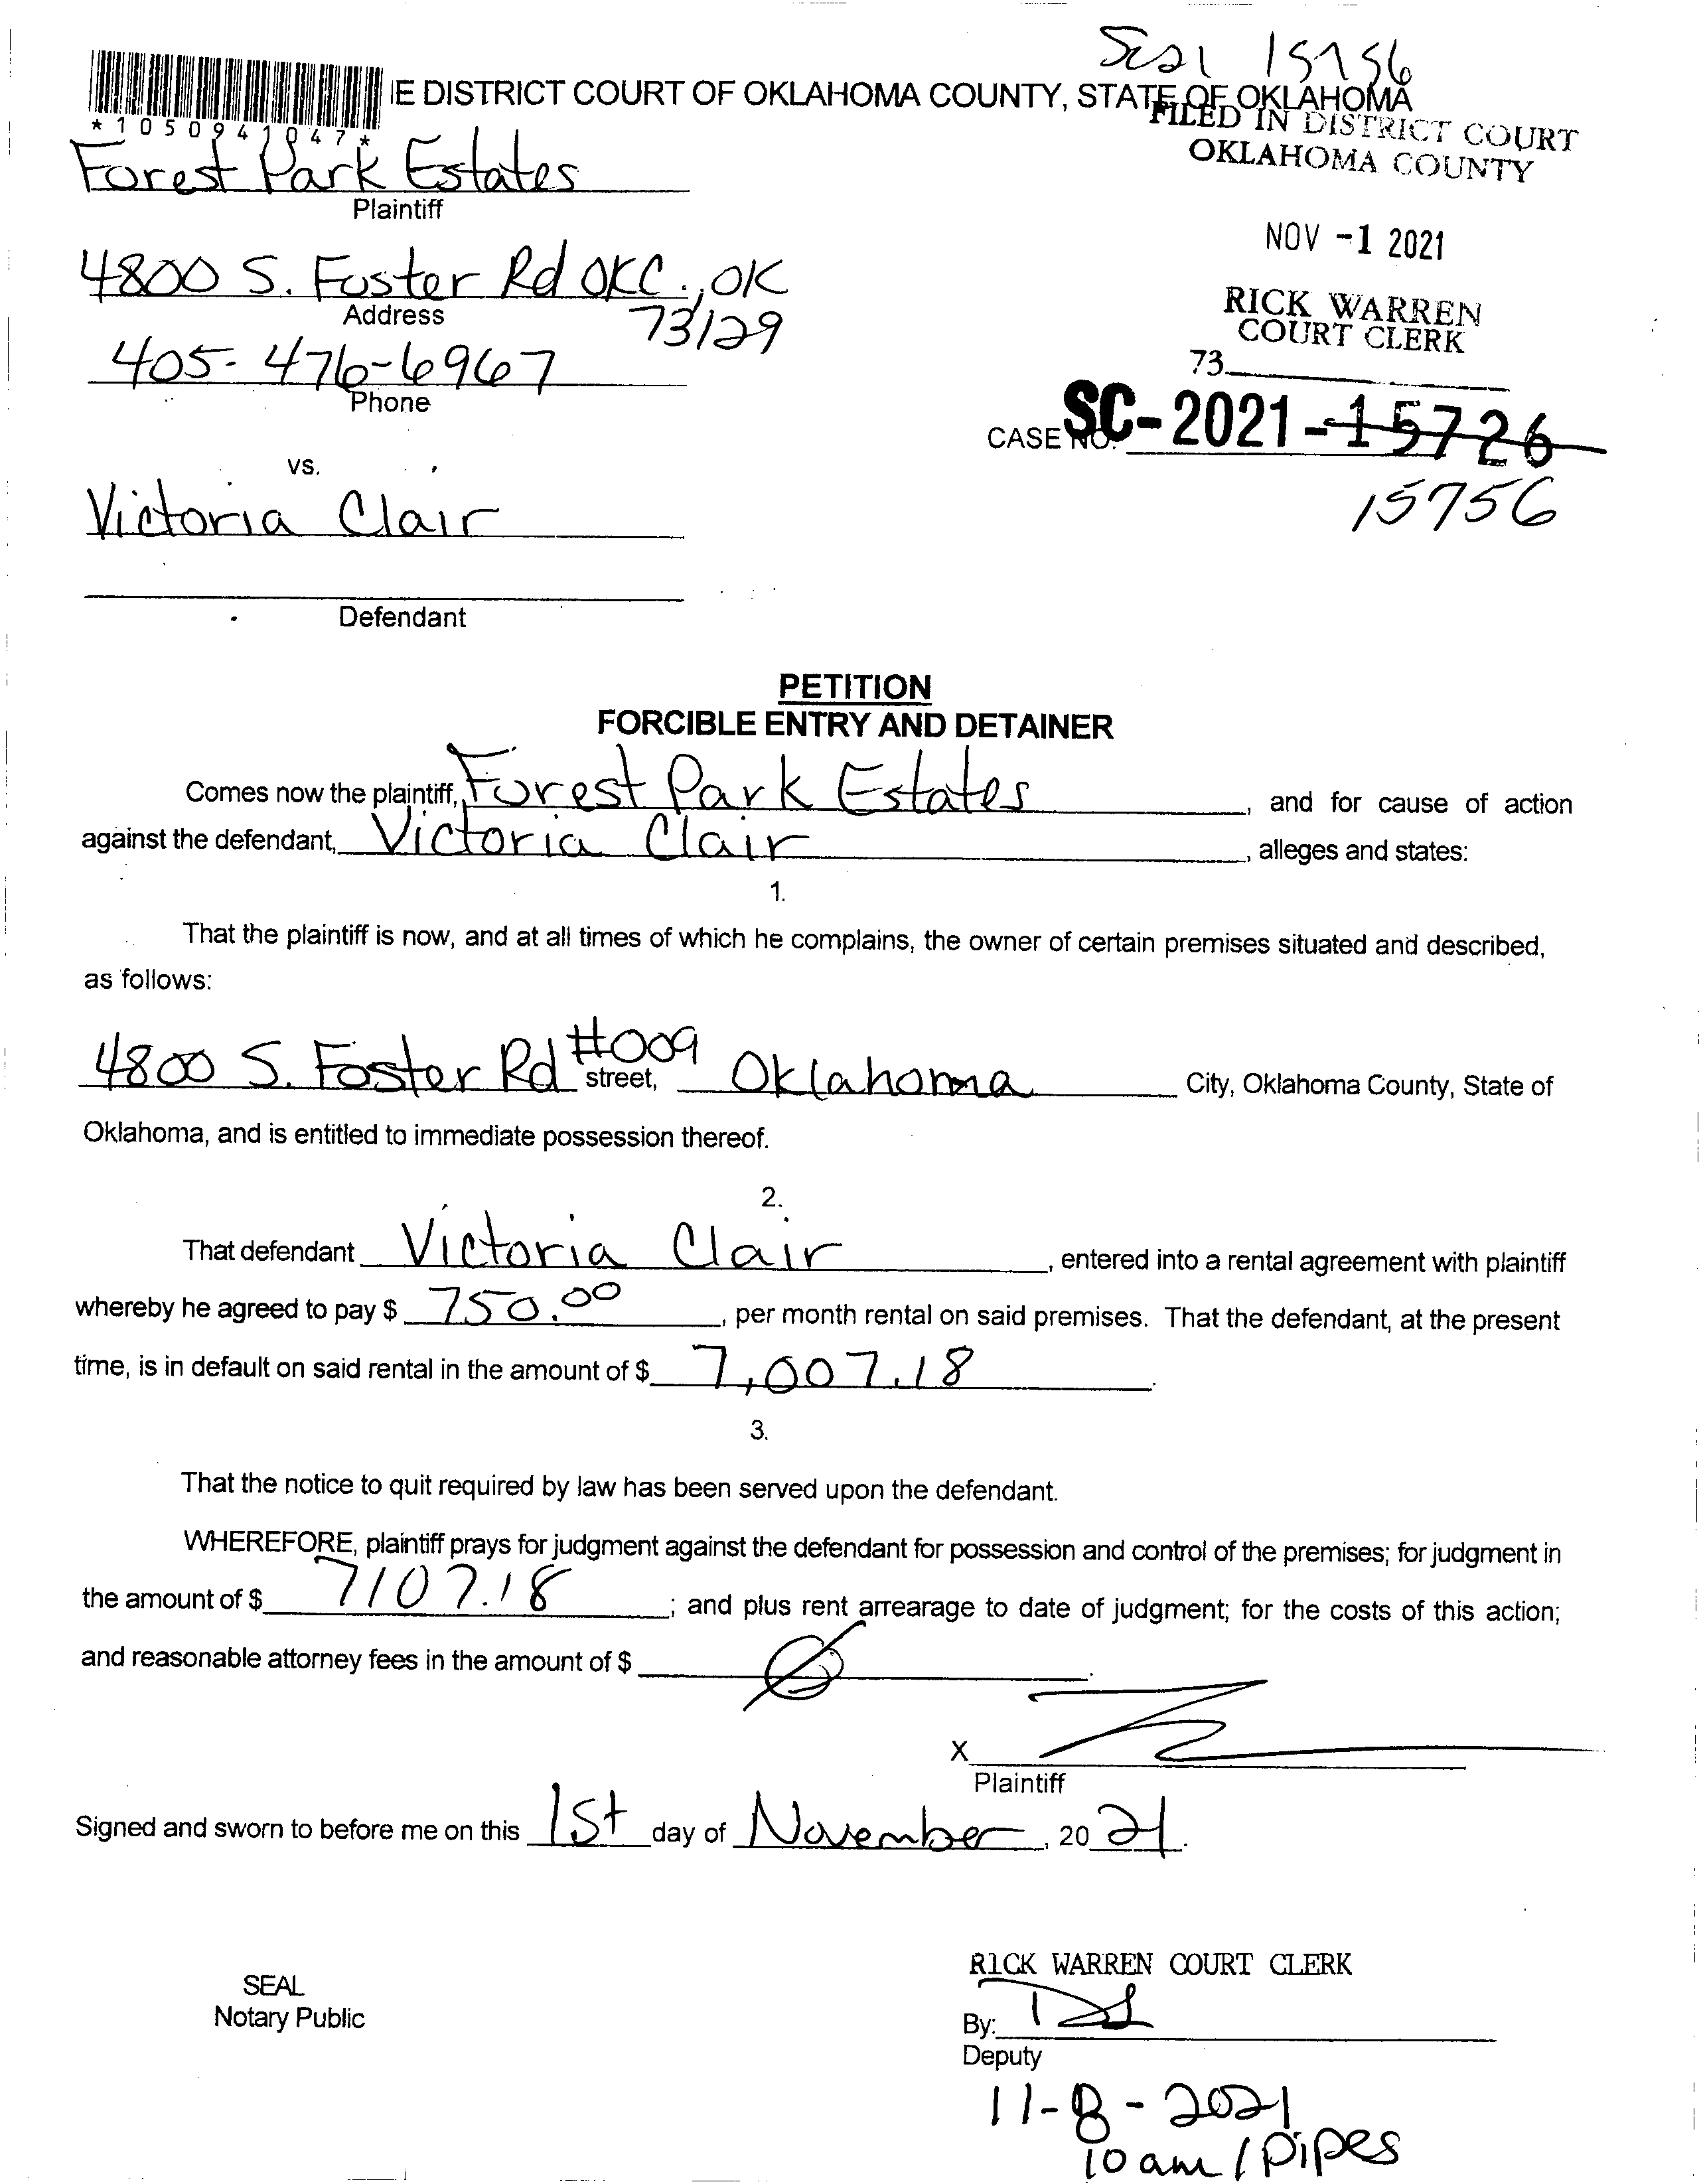 SC21 15756
IE DISTRICT COURT OF OKLAHOMA COUNTY, STATE OF OKLAHOMA
*1050941047*
FILED IN DISTRICT COURT
OKLAHOMA COUNTY
Forest Park Estates
Plaintiff
NOV -1 2021
4800 S. Foster Rd OKC., OK
73129
Address
RICK WARREN
COURT CLERK
405-476-6967
Phone
73
CASE NO. SC-2021-15726
15756
vs.
Victoria Clair
Defendant
PETITION
FORCIBLE ENTRY AND DETAINER
Comes now the plaintiff, Forest Park Estates, and for cause of action
against the defendant, Victoria Clair, alleges and states:
1.
That the plaintiff is now, and at all times of which he complains, the owner of certain premises situated and described,
as follows:
4800 S. Foster Rd #009 street, Oklahoma City, Oklahoma County, State of
Oklahoma, and is entitled to immediate possession thereof.
2.
That defendant Victoria Clair, entered into a rental agreement with plaintiff
whereby he agreed to pay $ 750.00, per month rental on said premises. That the defendant, at the present
time, is in default on said rental in the amount of $ 7,007.18.
3.
That the notice to quit required by law has been served upon the defendant.
WHEREFORE, plaintiff prays for judgment against the defendant for possession and control of the premises; for judgment in
the amount of $ 7107.18; and plus rent arrearage to date of judgment; for the costs of this action;
and reasonable attorney fees in the amount of $ Ø.
X
Plaintiff
Signed and sworn to before me on this 1st day of November, 2021.
SEAL
Notary Public
R1CK WARREN COURT CLERK
By:
Deputy
11-8-2021
10 am / Pipes